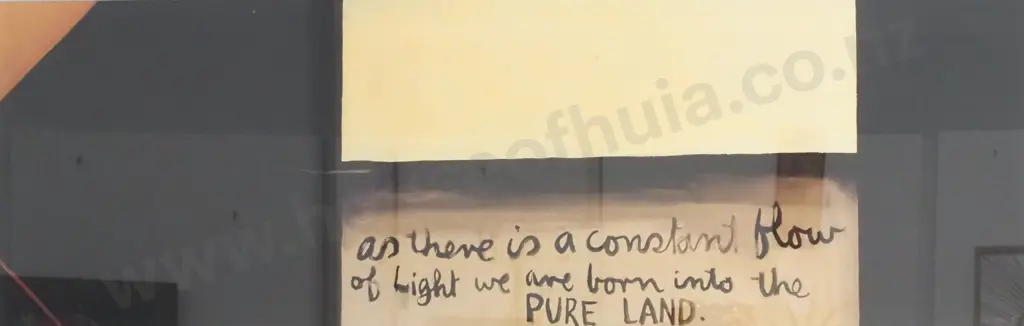 as there is a constant flow
of Light we are born into the
PURE LAND.
www.houseofhuia.co.nz